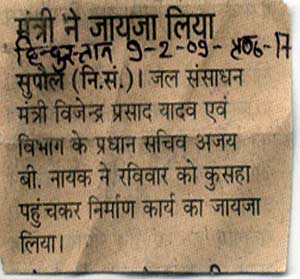 मंत्री ने जायजा लिया
हिन्दुस्तान 9-2-09- पृ०6-17
सुपौल (नि.सं.)। जल संसाधन
मंत्री विजेन्द्र प्रसाद यादव एवं
विभाग के प्रधान सचिव अजय
बी. नायक ने रविवार को कुसहा
पहुंचकर निर्माण कार्य का जायजा
लिया।